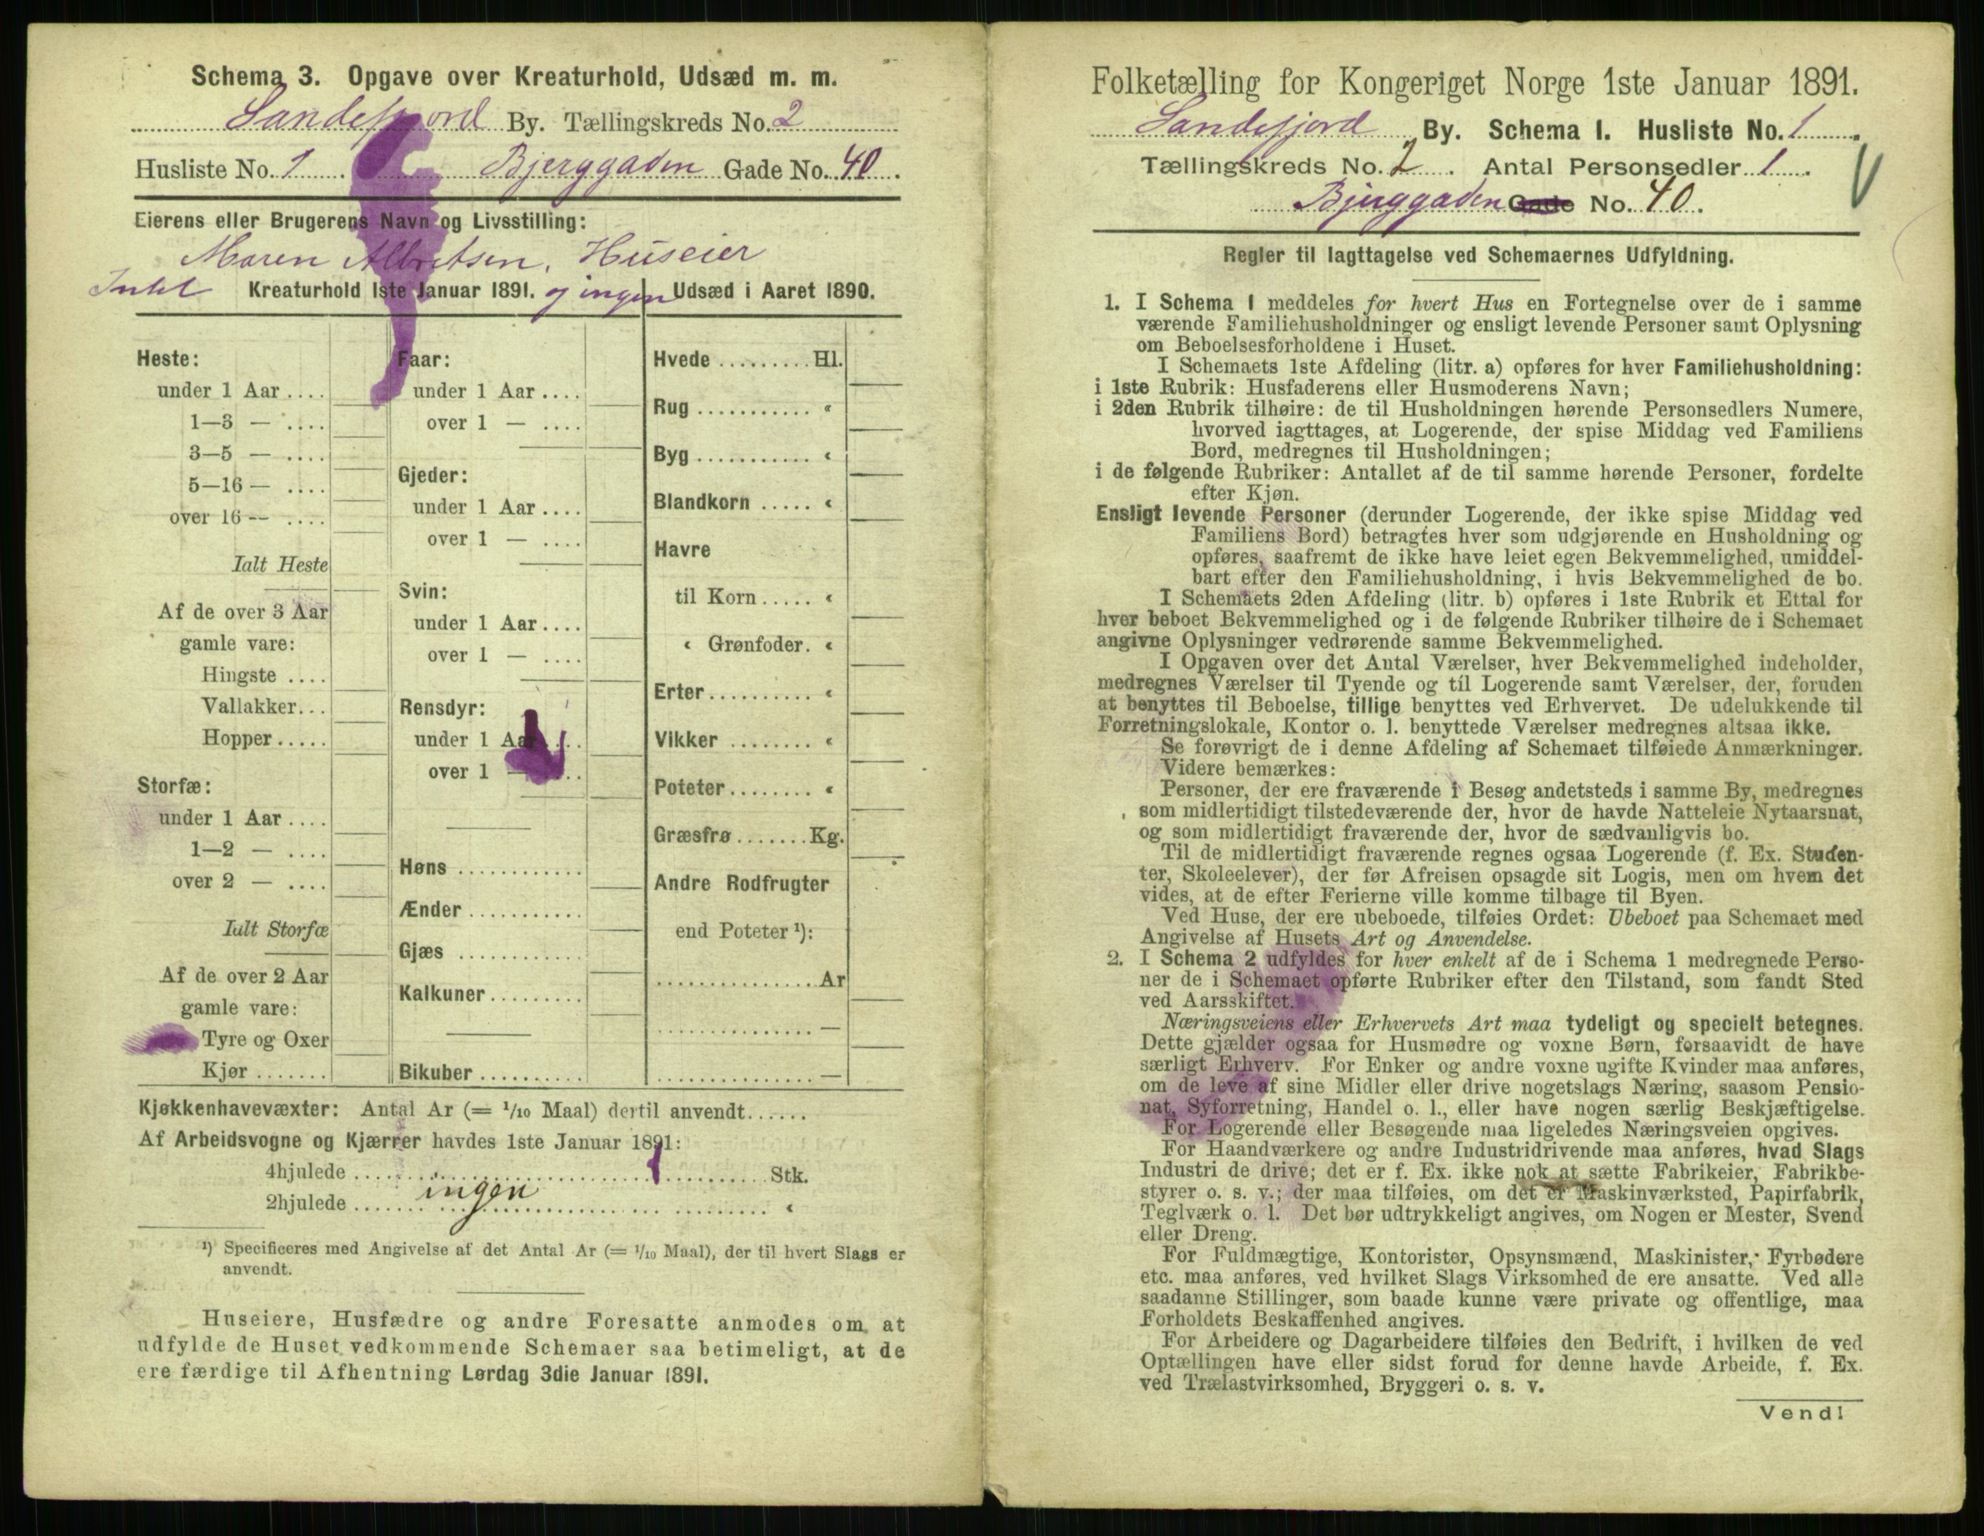 Schema 3. Opgave over Kreaturhold, Udsæd m. m.
Sandefjord By. Tællingskreds No. 2
Husliste No. 1. Bjerggaden Gade No. 40.
Eierens eller Brugerens Navn og Livsstilling:
Maren Albretsen, Huseier
Intet Kreaturhold 1ste Januar 1891. og ingen Udsæd i Aaret 1890.
Heste:
under 1 Aar ....
1—3 — ....
3—5 — ....
5—16 — ....
over 16 — ....
Ialt Heste
Af de over 3 Aar
gamle vare:
Hingste ....
Vallakker...
Hopper .....
Storfæ:
under 1 Aar ....
1—2 — ....
over 2 — ....
Ialt Storfæ
Af de over 2 Aar
gamle vare:
Tyre og Oxer
Kjør .......
Faar:
under 1 Aar ....
over 1 — ....
Gjeder:
under 1 Aar ....
over 1 — ....
Svin:
under 1 Aar ....
over 1 — ....
Rensdyr:
under 1 Aar ....
over 1 — ....
Høns ............
Ænder ...........
Gjæs ............
Kalkuner.........
Bikuber ..........
Hvede ......... Hl.
Rug ........... «
Byg ........... «
Blandkorn ..... «
Havre
til Korn ..... «
« Grønfoder. «
Erter.......... «
Vikker ........ «
Poteter........ «
Græsfrø ....... Kg.
Andre Rodfrugter
end Poteter ¹):
............... Ar
............... —
............... —
Kjøkkenhavevæxter: Antal Ar (= 1/10 Maal) dertil anvendt......
Af Arbeidsvogne og Kjærrer havdes 1ste Januar 1891:
4hjulede .......................... Stk.
2hjulede ...... ingen .......... «
¹) Specificeres med Angivelse af det Antal Ar (= 1/10 Maal), der til hvert Slags er
anvendt.
Huseiere, Husfædre og andre Foresatte anmodes om at
udfylde de Huset vedkommende Schemaer saa betimeligt, at de
ere færdige til Afhentning Lørdag 3die Januar 1891.
Folketælling for Kongeriget Norge 1ste Januar 1891.
Sandefjord By. Schema 1. Husliste No. 1.
Tællingskreds No. 2. Antal Personsedler 1.
Bjerggaden Gade No. 40.
Regler til Iagttagelse ved Schemaernes Udfyldning.
1. I Schema 1 meddeles for hvert Hus en Fortegnelse over de i samme
værende Familiehusholdninger og ensligt levende Personer samt Oplysning
om Beboelsesforholdene i Huset.
I Schemaets 1ste Afdeling (litr. a) opføres for hver Familiehusholdning:
i 1ste Rubrik: Husfaderens eller Husmoderens Navn;
i 2den Rubrik tilhøire: de til Husholdningen hørende Personsedlers Numere,
hvorved iagttages, at Logerende, der spise Middag ved Familiens
Bord, medregnes til Husholdningen;
i de følgende Rubriker: Antallet af de til samme hørende Personer, fordelte
efter Kjøn.
Ensligt levende Personer (derunder Logerende, der ikke spise Middag ved
Familiens Bord) betragtes hver som udgjørende en Husholdning og
opføres, saafremt de ikke have leiet egen Bekvemmelighed, umiddel-
bart efter den Familiehusholdning, i hvis Bekvemmelighed de bo.
I Schemaets 2den Afdeling (litr. b) opføres i 1ste Rubrik et Ettal for
hver beboet Bekvemmelighed og i de følgende Rubriker tilhøire de i Schemaet
angivne Oplysninger vedrørende samme Bekvemmelighed.
I Opgaven over det Antal Værelser, hver Bekvemmelighed indeholder,
medregnes Værelser til Tyende og til Logerende samt Værelser, der, foruden
at benyttes til Beboelse, tillige benyttes ved Erhvervet. De udelukkende til
Forretningslokale, Kontor o. l. benyttede Værelser medregnes altsaa ikke.
Se forøvrigt de i denne Afdeling af Schemaet tilføiede Anmærkninger.
Videre bemærkes:
Personer, der ere fraværende i Besøg andetsteds i samme By, medregnes
som midlertidigt tilstedeværende der, hvor de havde Natteleie Nytaarsnat,
og som midlertidigt fraværende der, hvor de sædvanligvis bo.
Til de midlertidigt fraværende regnes ogsaa Logerende (f. Ex. Studen-
ter, Skoleelever), der før Afreisen opsagde sit Logis, men om hvem det
vides, at de efter Ferierne ville komme tilbage til Byen.
Ved Huse, der ere ubeboede, tilføies Ordet: Ubeboet paa Schemaet med
Angivelse af Husets Art og Anvendelse.
2. I Schema 2 udfyldes for hver enkelt af de i Schema 1 medregnede Perso-
ner de i Schemaet opførte Rubriker efter den Tilstand, som fandt Sted
ved Aarsskiftet.
Næringsveiens eller Erhvervets Art maa tydeligt og specielt betegnes.
Dette gjælder ogsaa for Husmødre og voxne Børn, forsaavidt de have
særligt Erhverv. For Enker og andre voxne ugifte Kvinder maa anføres,
om de leve af sine Midler eller drive nogetslags Næring, saasom Pensio-
nat, Syforretning, Handel o. l., eller have nogen særlig Beskjæftigelse.
For Logerende eller Besøgende maa ligeledes Næringsveien opgives.
For Haandværkere og andre Industridrivende maa anføres, hvad Slags
Industri de drive; det er f. Ex. ikke nok at sætte Fabrikeier, Fabrikbe-
styrer o. s. v.; der maa tilføies, om det er Maskinværksted, Papirfabrik,
Teglværk o. l. Det bør udtrykkeligt angives, om Nogen er Mester, Svend
eller Dreng.
For Fuldmægtige, Kontorister, Opsynsmænd, Maskinister, Fyrbødere
etc. maa anføres, ved hvilket Slags Virksomhed de ere ansatte. Ved alle
saadanne Stillinger, som baade kunne være private og offentlige, maa
Forholdets Beskaffenhed angives.
For Arbeidere og Dagarbeidere tilføies den Bedrift, i hvilken de ved
Optællingen have eller sidst forud for denne havde Arbeide, f. Ex.
ved Trælastvirksomhed, Bryggeri o. s. v.
Vend!